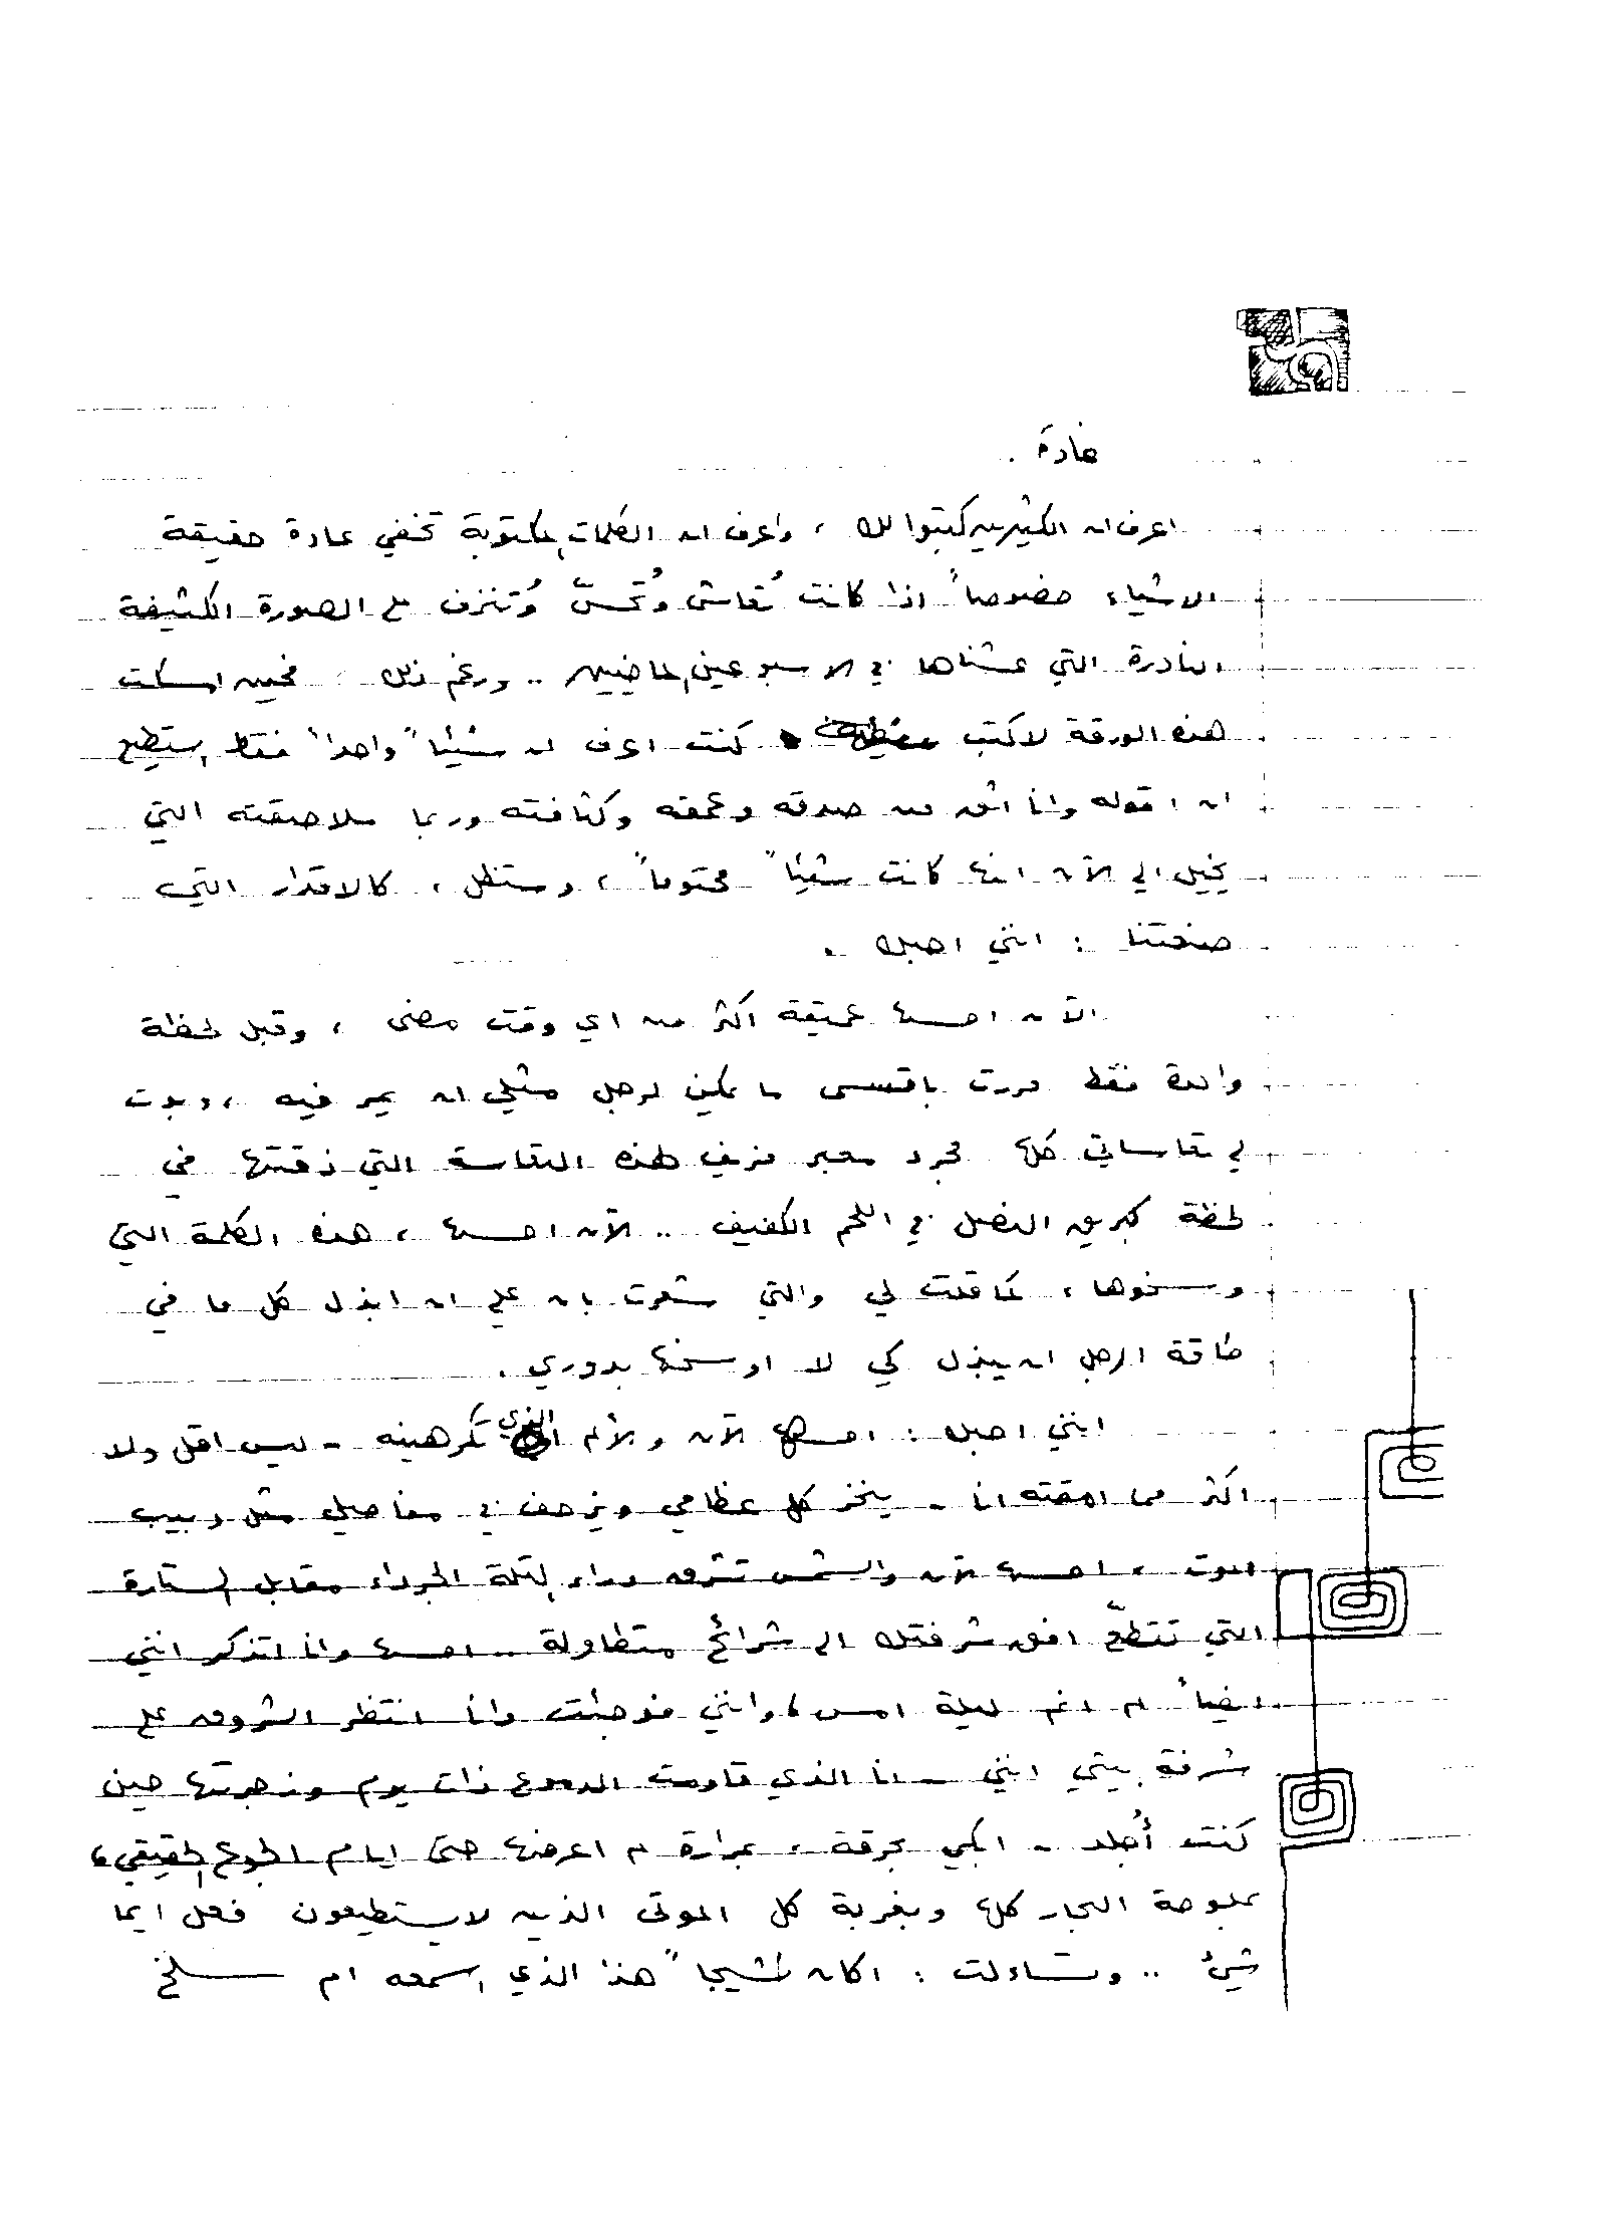 غادة .
اعرف ان الكثيرين كتبوا لك ، واعرف ان الكلمات المكتوبة تخفي عادة حقيقة
الاشياء خصوصاً اذا كانت تُعاش وتُحسّ وتُنزف على الصورة الكثيفة
النادرة التي عشناها في الاسبوعين الماضيين .. ورغم ذلك ، فحين امسكت
هذه الورقة لاكتب كنت اعرف ان شيئاً واحداً فقط استطيع
ان اقوله وانا اثق من صدقه وعمقه وكثافته وربما ملاصقته التي
يخيل الي الآن انها كانت شيئاً محتوماً ، وستظل ، كالاقدار التي
صنعتنا : انني احبك .
الآن احسها عميقة اكثر من اي وقت مضى ، وقبل لحظة
واحدة فقط مررت باقسى ما يمكن لرجل مثلي ان يمر فيه ، وبدت
لي تعاساتي كلها مجرد معبر مزيف لهذه التعاسة التي ذقتها في
لحظة كبريق النصل في اللحم الكفيف .. الآن احسها ، هذه الكلمة التي
وسخوها ، كما قلت لي والتي شعرت بان علي ان ابذل كل ما في
طاقة الرجل ان يبذل كي لا اوسخها بدوري .
انني احبك : احسها الآن والألم الذي تكرهينه - ليس اقل ولا
اكثر مما امقته انا - ينخر كل عظامي ويزحف في مفاصلي مثل دبيب
الموت ، احسها الآن والشمس تشرق وراء التلة الجرداء مقابل الستارة
التي تقطّع افق شرفتك الى شرائح متطاولة .. احسها وانا اتذكر انني
ايضاً لم انم ليلة امس ، وانني فوجئت وانا انتظر الشروق على
شرفة بيتي انني - انا الذي قاومت الدموع ذات يوم وزجرتها حين
كنت أُجلد - ابكي بحرقة ، بمرارة لم اعرفها حتى ايام الجوع الحقيقي ،
بملوحة البحار كلها وبغربة كل الموتى الذين لا يستطيعون فعل ايما
شيء .. وتساءلت : اكان نشيجاً هذا الذي اسمعه ام سلخ